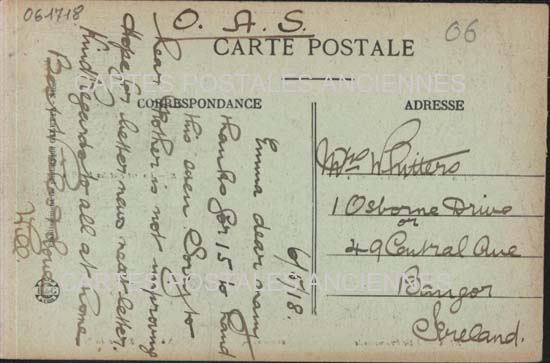 061718
O. A. S.
06
CARTE POSTALE
CARTES POSTALES ANCIENNES
CORRESPONDANCE
ADRESSE
6/5/18.
Emma dear many
thanks for 15 to hand
this even Sorry to
hear Mother is not improving
Hope for better news next letter.
Kind regards to all at home
Best Love
Will.
Mrs Whitters
1 Osborne Drive
or
49 Central Ave
Bangor
Ireland.
CARTES POSTALES ANCIENNES